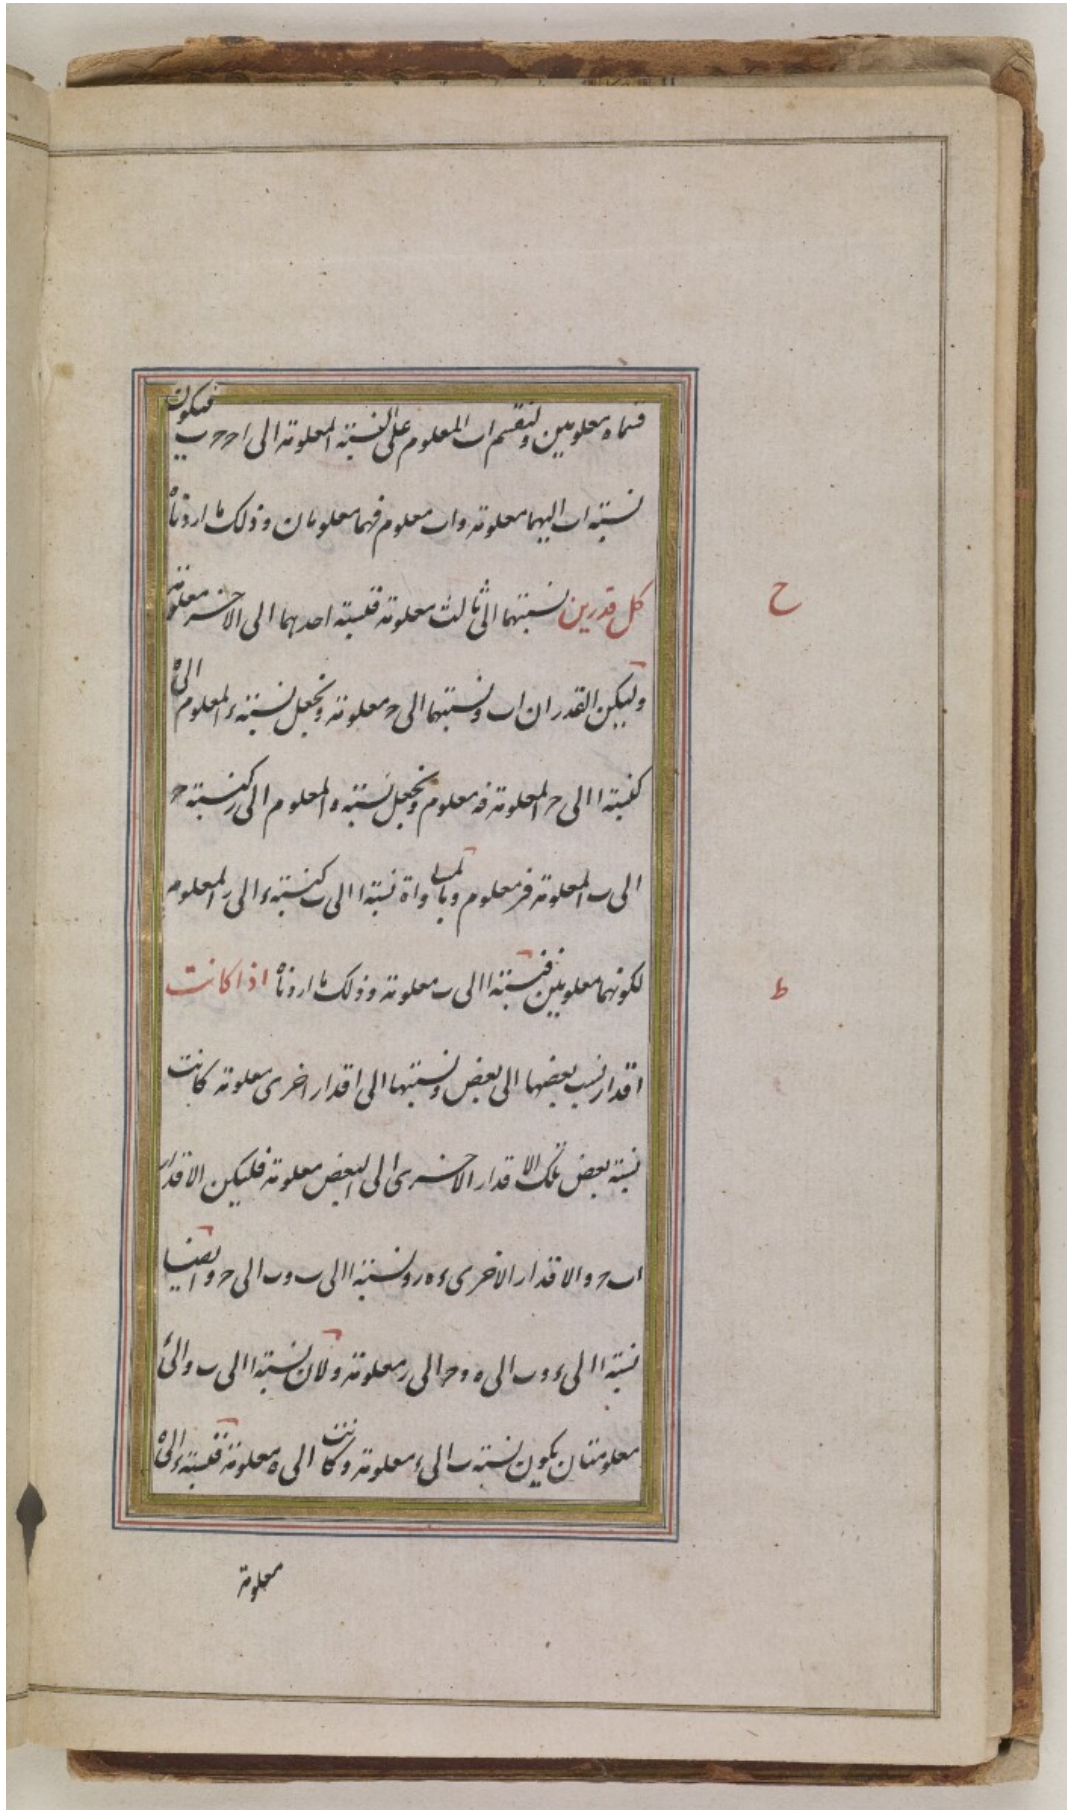 قسماه معلومين ولنقسم اب المعلوم على النسبة المعلومة الى اح حب فيكون
نسبة اب اليهما معلومة واب معلوم فهما معلومان وذلك ما اردناه
ح
كل قدرين نسبتهما الى ثالث معلومة فنسبة احدهما الى الاخر معلومة
وليكن القدران اب ونسبتهما الى ح معلومة ونجعل نسبة ء المعلوم الى ه
كنسبة ا الى ح المعلومة فه معلوم ونجعل نسبة ه المعلوم الى ر كنسبة ح
الى ب المعلومة فر معلوم وبالمساواة نسبة ا الى ب كنسبة ء الى ر المعلومة
ط
لكونهما معلومين فنسبة ا الى ب معلومة وذلك ما اردناه اذا كانت
اقدار نسب بعضها الى بعض ونسبتها الى اقدار اخرى معلومة كانت
نسبة بعض تلك الاقدار الاخرى الى البعض معلومة فليكن الاقدار
اب ح والاقدار الاخرى ء ه ر ونسبة ا الى ب وب الى ح وايضا
نسبة ا الى ء وب الى ه وح الى ر معلومة ولان نسبة ا الى ب والى ء
معلومتان يكون نسبة ب الى ء معلومة وكانت الى ه معلومة فنسبة ء الى ه
معلومة